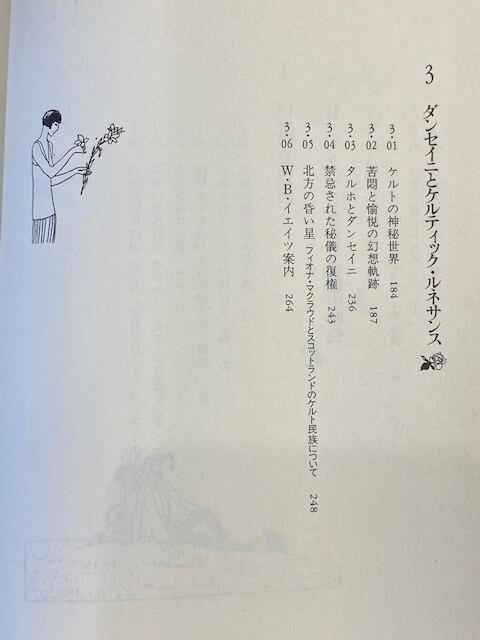 3 ダンセイニとケルティック・ルネサンス
3・01 ケルトの神秘世界 184
3・02 苦悶と愉悦の幻想軌跡 187
3・03 タルホとダンセイニ 236
3・04 禁忌された秘儀の復権 243
3・05 北方の昏い星 フィオナ・マクラウドとスコットランドのケルト民族について 248
3・06 W・B・イエイツ案内 264